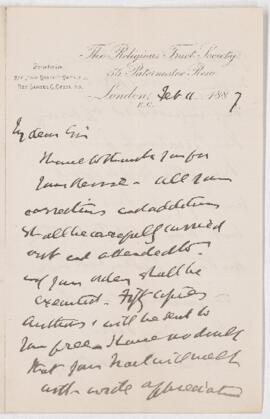 The Religious Tract Society
56, Paternoster Row,
London, Feb 11 1887.
E.C.
My dear Sir
I have to thank you for
your Revise - all your
corrections and additions
shall be carefully carried
out and attended to.
and your order shall be
executed. Fifty copies
Authors, will be sent to
you free - I have no doubt
that your Tract will meet
with a wide appreciation